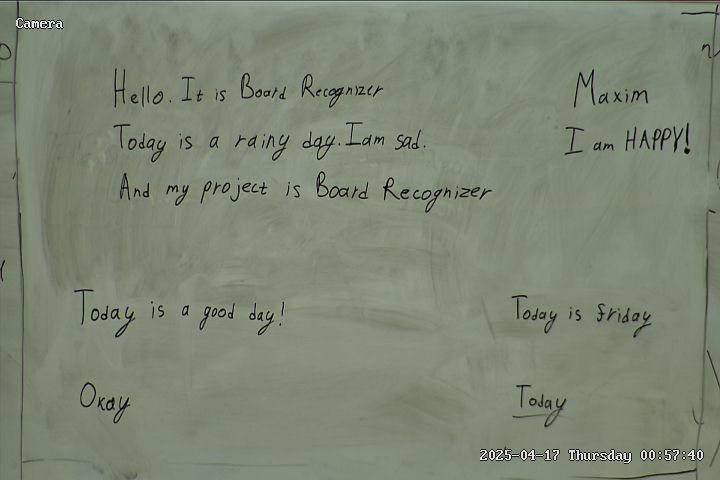 Camera
Hello. It is Board Recognizer
Today is a rainy day. I am sad.
And my project is Board Recognizer
Maxim
I am HAPPY!
Today is a good day!
Okay
Today is friday
Today
2025-04-17 Thursday 00:57:40